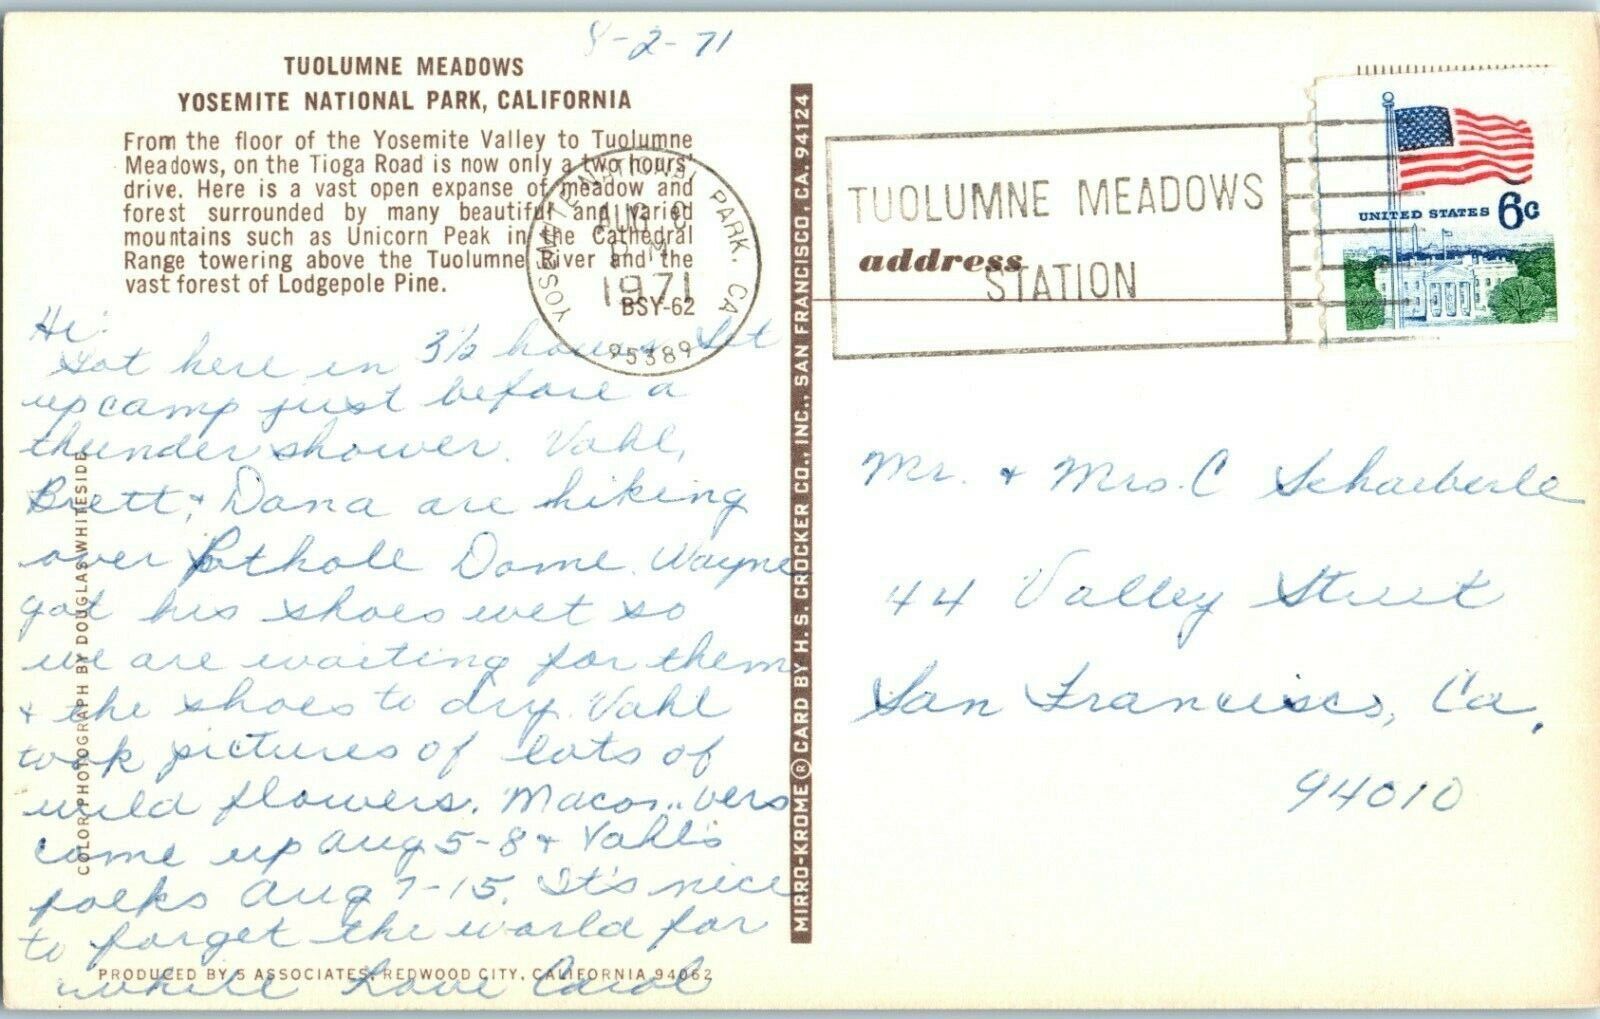 8-2-71
TUOLUMNE MEADOWS
YOSEMITE NATIONAL PARK, CALIFORNIA
From the floor of the Yosemite Valley to Tuolumne
Meadows, on the Tioga Road is now only a two hours'
drive. Here is a vast open expanse of meadow and
forest surrounded by many beautiful and varied
mountains such as Unicorn Peak in the Cathedral
Range towering above the Tuolumne River and the
vast forest of Lodgepole Pine.
BSY-62
YOSEMITE NATIONAL PARK, CA
AUG
PM
1971
95389
Hi!
Got here in 3½ hours. Set
up camp just before a
thunder shower. Vahl,
Brett, & Dana are hiking
over Pothole Dome. Wayne
got his shoes wet so
we are waiting for them
& the shoes to dry. Vahl
took pictures of lots of
wild flowers.
come up Aug 5-8 & Vahl's
folks Aug 7-15. It's nice
to forget the world for
while Love Carol
COLORPHOTOGRAPH BY DOUGLAS WHITESIDE
PRODUCED BY 5 ASSOCIATES, REDWOOD CITY, CALIFORNIA 94062
MIRRO-KROME® CARD BY H. S. CROCKER CO., INC., SAN FRANCISCO, CA. 94124
TUOLUMNE MEADOWS
STATION
address
UNITED STATES 6c
Mr. & Mrs. C Schaeberle
44 Valley Street
San Francisco, Ca.
94010